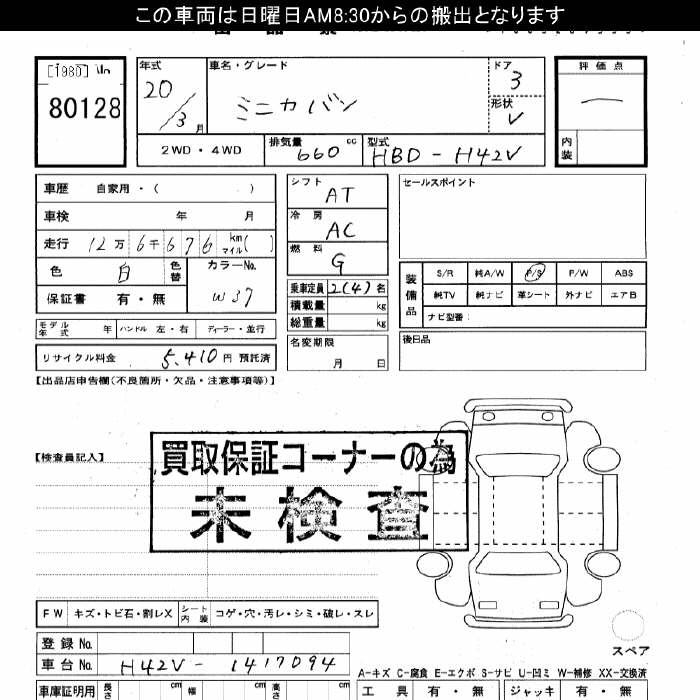 この車両は日曜日AM8:30からの搬出となります
[1980]
80128
年式
20/3月
車名・グレード
ミニカバン
ドア
3
形状
V
評価点
内装
2WD・4WD
排気量
660cc
型式
HBD-H42V
車歴 自家用・( )
車検 年 月
走行 12万6千676km マイル( )
色 白 色替
カラーNo.
W37
保証書 有・無
シフト
AT
冷房
AC
燃料
G
乗車定員 2(4)名
積載量 kg
総重量 kg
セールスポイント
装備品
S/R 純A/W P/S P/W ABS
純TV 純ナビ 革シート 外ナビ エアB
ナビ型番:
モデル年式 年 ハンドル 左・右 ディーラー・並行
名変期限
月 日
後日品
リサイクル料金 5,410円 預託済
【出品店申告欄(不良箇所・欠品・注意事項等)】
【検査員記入】
買取保証コーナーの為
未検査
FW キズ・トビ石・割レX シート内装 コゲ・穴・汚レ・シミ・破レ・スレ
登録No.
車台No. H42V-1417094
スペア
A-キズ C-腐食 E-エクボ S-サビ U-凹ミ W-補修 XX-交換済
車庫証明用 長さ cm 幅 cm 高さ cm
工具 有・無 ジャッキ 有・無